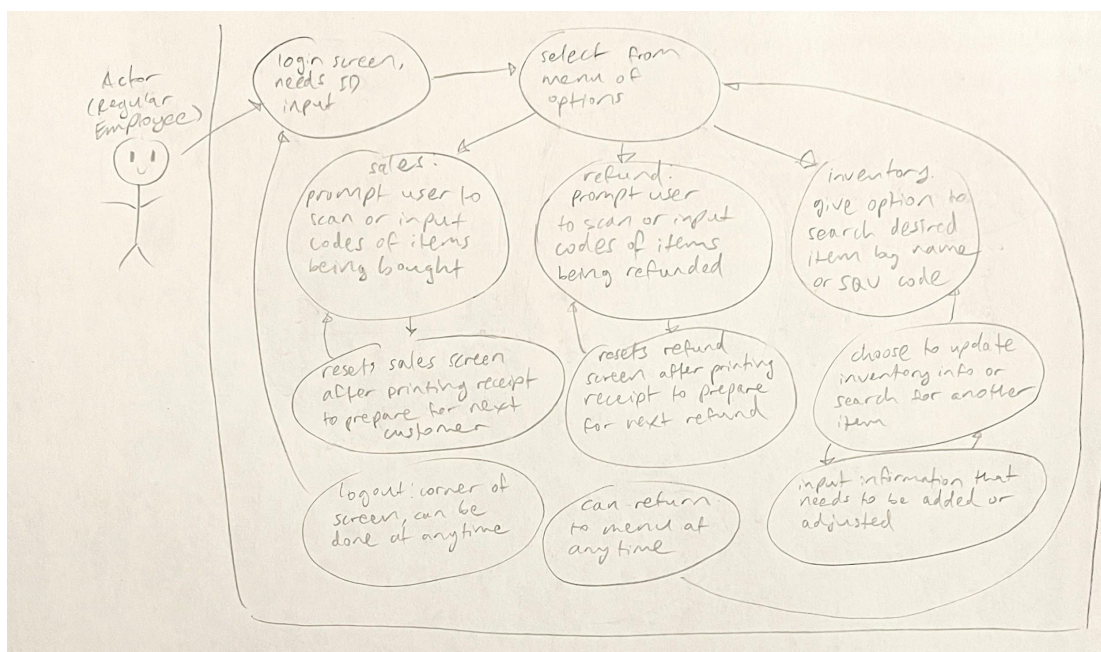 Actor
(Regular
Employee)
login screen,
needs ID
input
select from
menu of
options
sales:
prompt user to
scan or input
codes of items
being bought
refund:
prompt user
to scan or input
codes of items
being refunded
inventory:
give option to
search desired
item by name
or SQU code
resets sales screen
after printing receipt
to prepare for next
customer
resets refund
screen after printing
receipt to prepare
for next refund
choose to update
inventory info or
search for another
item
logout: corner of
screen, can be
done at anytime
can return
to menu at
anytime
input information that
needs to be added or
adjusted